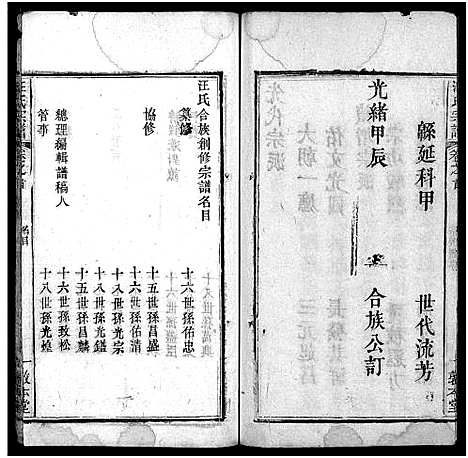 緜延科甲　世代流芳
光緒甲辰　合族公訂
汪氏合族創修宗譜名目
纂修
十六世孫佑忠
十六世孫佑清
協修
十五世孫昌盛
十八世孫光宗
十八世孫光鑑
總理編輯譜稿人
十五世孫昌
十六世孫致松
管事
十八世孫光煌
汪氏宗譜
卷之首
名目
一
敦本堂